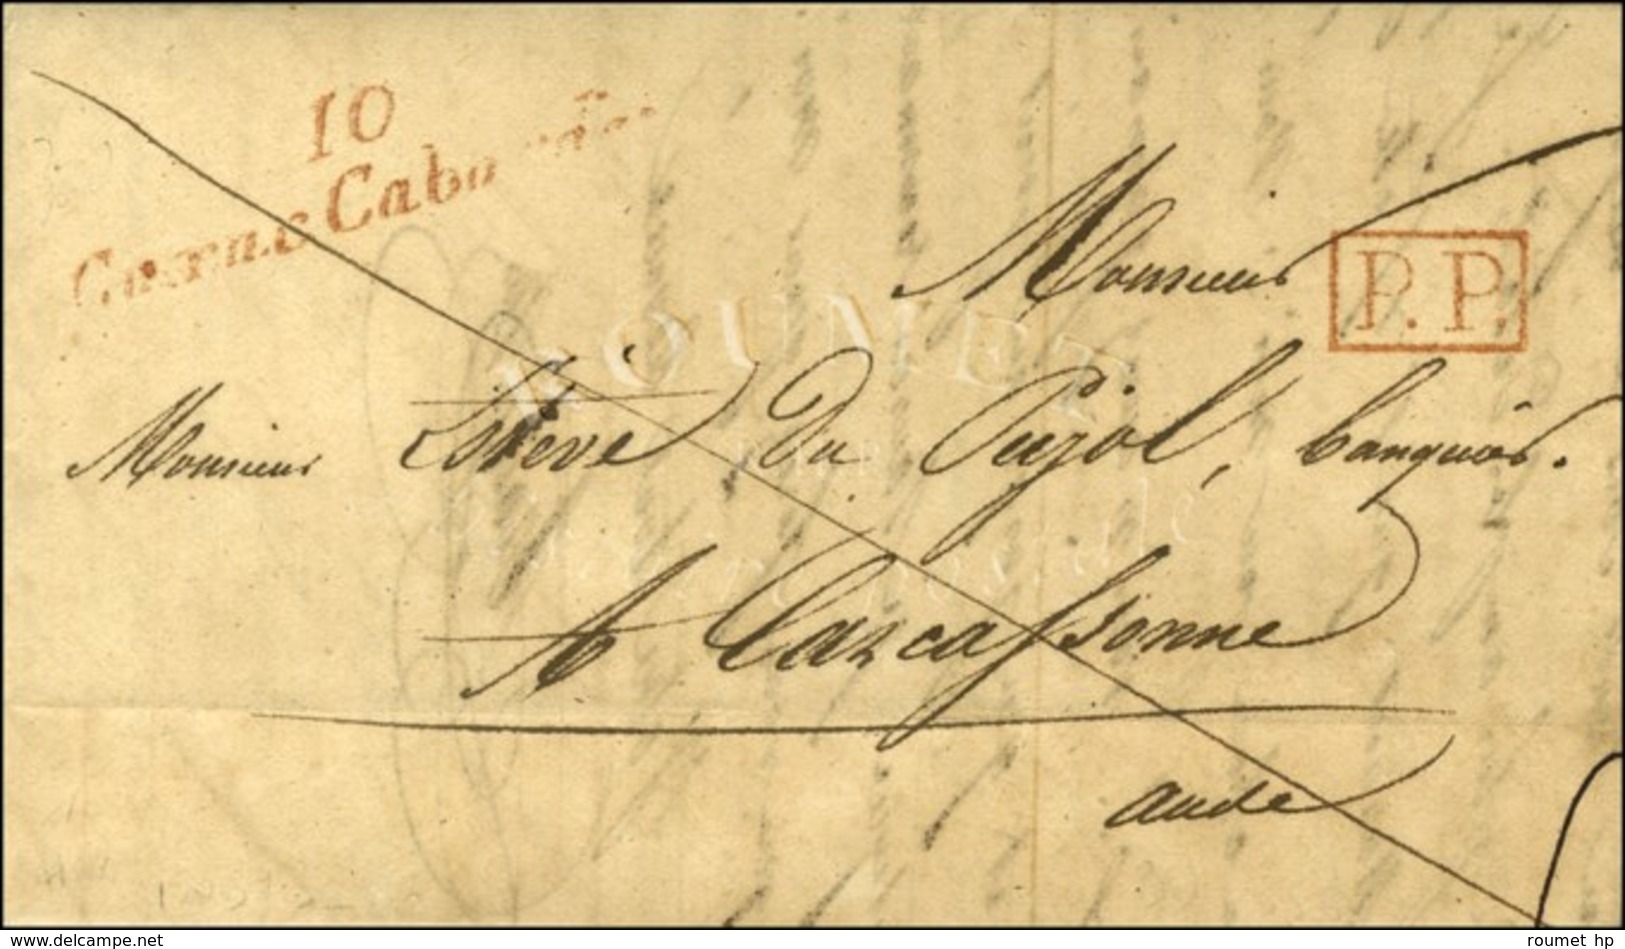 10
Cabardès
P.P.
Monsieur
Monsieur Estève du Pujol, banquier.
A Carcassonne
aude
ROUMET
delcampe.net
roumet hp